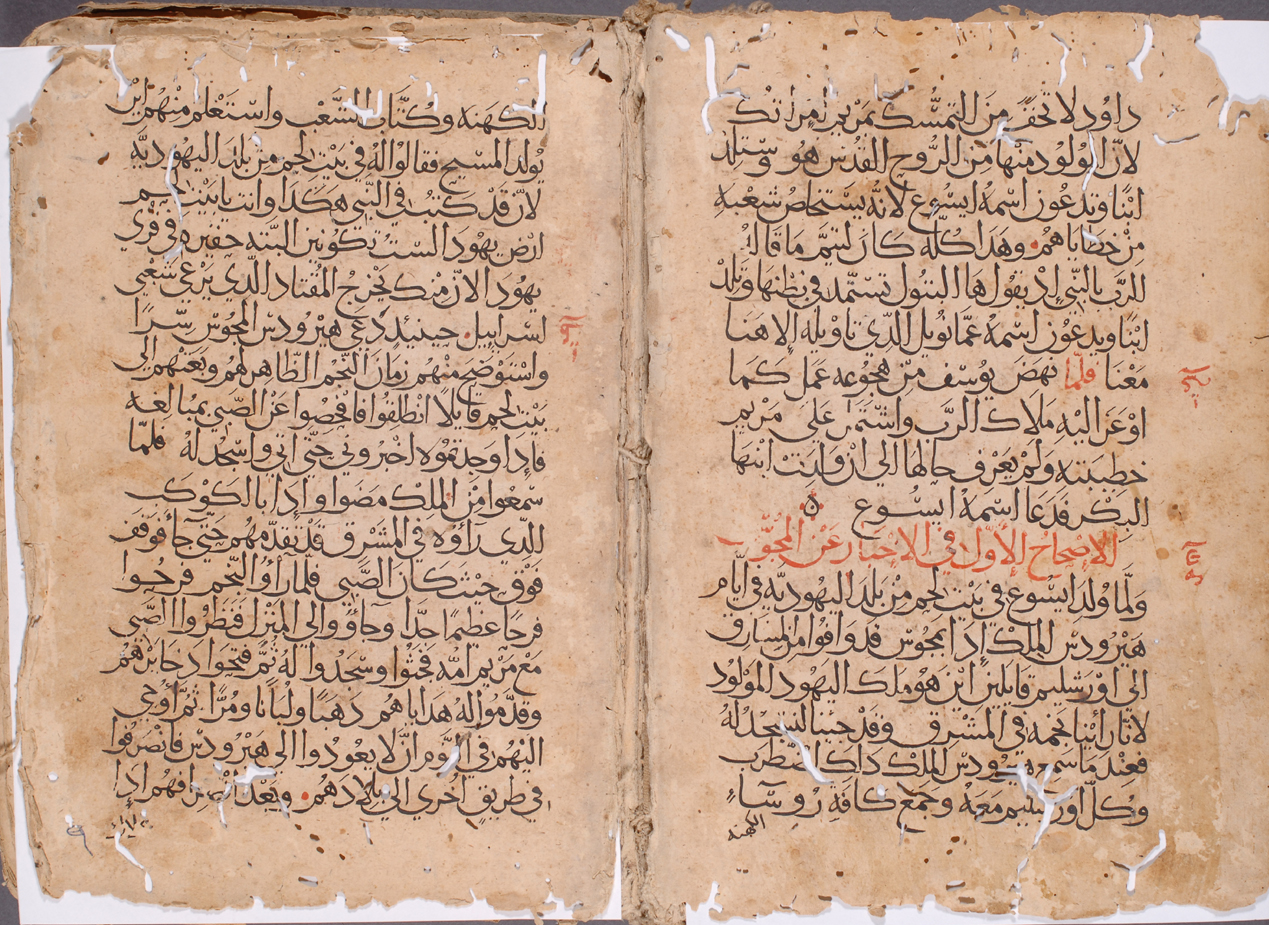 داود لا تخف من التمسك بمريم امراتك
لان المولود منها من الروح القدس هو وستلد
ابنا ويدعون اسمه ايسوع لانه يستخلص شعبه
من خطاياهم وهذا كله كان ليتم ما قاله
الرب بالنبي اذ يقول ها البتول تستمد في بطنها وتلد
ابنا ويدعون اسمه عمانويل الذي تاويله الاهنا
معنا فلما نهض يوسف من هجوعه عمل كما
اوعز اليه ملاك الرب واشتمل على مريم
خطيبته ولم يعرف حالها الى ان ولدت ابنها
البكر فدعا اسمه ايسوع
الاصحاح الاول في الاخبار عن المجوس
ولما ولد ايسوع في بيت لحم من بلد اليهودية في ايام
هيرودس الملك اذا بمجوس قد وافوا من المشارق
الى اورشليم قايلين اين هو ملك اليهود المولود
لانا راينا نجمه في المشرق وقد جينا لنسجد له
فعند ما سمع هيرودس الملك ذاك اضطرب
وكل اورشليم معه وجمع كافة روساء
الكهنه
الكهنه وكتاب الشعب واستعلم منهم اين
يولد المسيح فقالوا له في بيت لحم من بلد اليهوديه
لان قد كتب في النبي هكذا وانت يا بيت لحم
ارض يهودا لست تكونين البته حقيره في قرى
يهودا لان منك يخرج المقتاد الذي يرعى شعبي
اسراييل حينيذ دعى هيرودس المجوس سرا
واستوضح منهم زمان النجم الظاهر لهم وبعثهم الى
بيت لحم قايلا انطلقوا فافحصوا عن الصبي بمبالغه
فاذا وجدتموه اخبروني حتى اتي واسجد له فلما
سمعوا من الملك مضوا واذا بالكوكب
الذي راوه في المشرق قد تقدمهم حتى جا فوقف
فوق حيث كان الصبي فلما راوا النجم فرحوا
فرحا عظيما جدا وجاووا الى المنزل فنظروا الصبي
مع مريم امه فجثوا وسجدوا له ثم فتحوا ذخايرهم
وقدموا له هداياهم ذهبا ولبانا ومرا ثم اوحي
اليهم في النوم ان لا يعودوا الى هيرودس فانصرفوا
في طريق اخرى الى بلادهم وبعد انصرافهم اذا